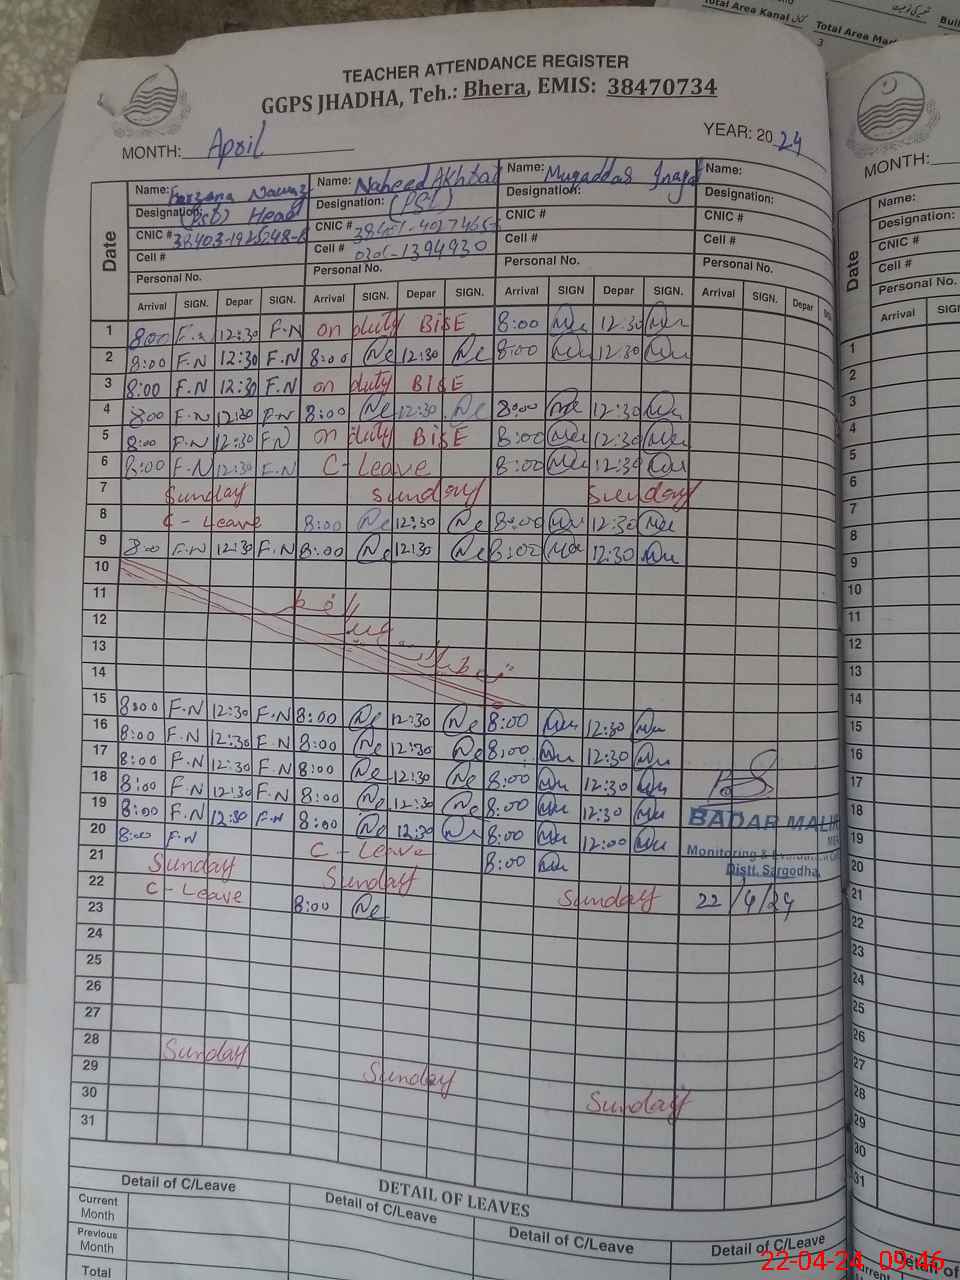 Total Area Kanal کنال
Total Area Mar
3
Buil
TEACHER ATTENDANCE REGISTER
GGPS JHADHA, Teh.: Bhera, EMIS: 38470734
MONTH: April
YEAR: 2024
Date
Name: Farzana Nawaz
Designation: (PST) Head
CNIC #
Cell #
Personal No.
Name: Naheed Akhtar
Designation: (PST)
CNIC #
Cell #
Personal No.
Name: Muqaddas
Designation:
CNIC #
Cell #
Personal No.
Name:
Designation:
CNIC #
Cell #
Personal No.
Arrival SIGN. Depar SIGN. Arrival SIGN. Depar SIGN. Arrival SIGN Depar SIGN. Arrival SIGN. Depar
1 8:00 F.N 12:30 F.N on duty BISE 8:00 Mu 12:30 Mu
2 8:00 F.N 12:30 F.N 8:00 Ne 12:30 Ne 8:00 Mu 12:30 Mu
3 8:00 F.N 12:30 F.N on duty BISE
4 8:00 F.N 12:30 F.N 8:00 Ne 12:30 Ne 8:00 Mu 12:30 Mu
5 8:00 F.N 12:30 F.N on duty BISE 8:00 Mu 12:30 Mu
6 8:00 F.N 12:30 F.N C-Leave 8:00 Mu 12:30 Mu
7 Sunday Sunday Sunday
8 C-Leave 8:00 Ne 12:30 Ne 8:00 Mu 12:30 Mu
9 8:00 F.N 12:30 F.N 8:00 Ne 12:30 Ne 8:00 Mu 12:30 Mu
10
11
12
13
14
تعطیلات عید الفطر
15 8:00 F.N 12:30 F.N 8:00 Ne 12:30 Ne 8:00 Mu 12:30 Mu
16 8:00 F.N 12:30 F.N 8:00 Ne 12:30 Ne 8:00 Mu 12:30 Mu
17 8:00 F.N 12:30 F.N 8:00 Ne 12:30 Ne 8:00 Mu 12:30 Mu
18 8:00 F.N 12:30 F.N 8:00 Ne 12:30 Ne 8:00 Mu 12:30 Mu
19 8:00 F.N 12:30 F.N 8:00 Ne 12:30 Ne 8:00 Mu 12:00 Mu
20 8:00 F.N C-Leave 8:00 Mu
21 Sunday Sunday Sunday
22 C-Leave 8:00 Ne
23
24
25
26
27
28 Sunday Sunday Sunday
29
30
31
BADAR MALIK
Monitoring & Evaluation
Distt. Sargodha
22/4/24
DETAIL OF LEAVES
Detail of C/Leave
Detail of C/Leave
Detail of C/Leave
Detail of C/Leave
Current Month
Previous Month
Total
MONTH:
Date
Name:
Designation:
CNIC #
Cell #
Personal No.
Arrival
1
2
3
4
5
6
7
8
9
10
11
12
13
14
15
16
17
18
19
20
21
22
23
24
25
26
27
28
29
30
31
Detail of
22-04-24 09:46